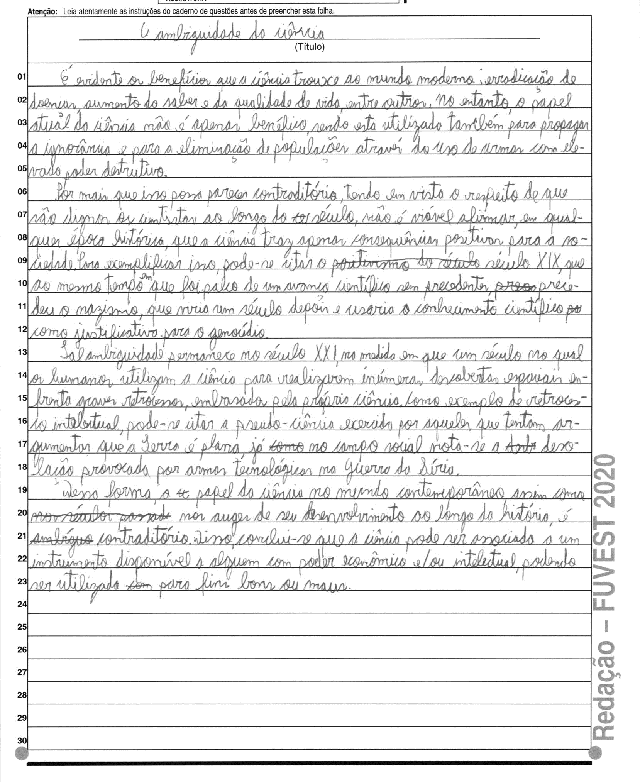 Atenção: Leia atentamente as instruções do caderno de questões antes de preencher esta folha.
A ambiguidade da ciência
(Título)
01 É evidente os benefícios que a ciência trouxe ao mundo moderno: erradicação de
02 doenças, aumento do saber e da qualidade de vida, entre outros. No entanto, o papel
03 atual da ciência não é apenas benéfico, sendo esta utilizada também para propagar
04 a ignorância e para a eliminação de populações através do uso de armas com ele-
05 vado poder destrutivo.
06 Por mais que isso possa parecer contraditório, tendo em vista o respeito de que
07 são dignos os cientistas ao longo do século, não é viável afirmar, em qual-
08 quer época histórica, que a ciência traz apenas consequências positivas para a so-
09 ciedade. Para exemplificar isso, pode-se citar o positivismo do século século XIX, que
10 ao mesmo tempo em que foi palco de um avanço científico sem precedentes prece-
11 deu o nazismo, que meio um século depois usaria o conhecimento científico
12 como justificativa para o genocídio.
13 Tal ambiguidade permanece no século XXI, na medida em que um século no qual
14 os humanos utilizam a ciência para realizarem inúmeras descobertas espaciais en-
15 frenta graves retrocessos, embasados pela própria ciência. Como exemplo de retroces-
16 so intelectual, pode-se citar a pseudo-ciência exercida por aqueles que tentam ar-
17 gumentar que a Terra é plana, já como no campo social nota-se a deso-
18 lação provocada por armas tecnológicas na Guerra da Síria.
19 Dessa forma o papel da ciência no mundo contemporâneo assim como
20 nos séculos passado nos auges de seu desenvolvimento ao longo da história, é
21 ambíguo contraditório. Disso, conclui-se que a ciência pode ser associada a um
22 instrumento disponível a alguém com poder econômico e/ou intelectual, podendo
23 ser utilizada para fins bons ou maus.
24
25
26
27
28
29
30
Redação – FUVEST 2020